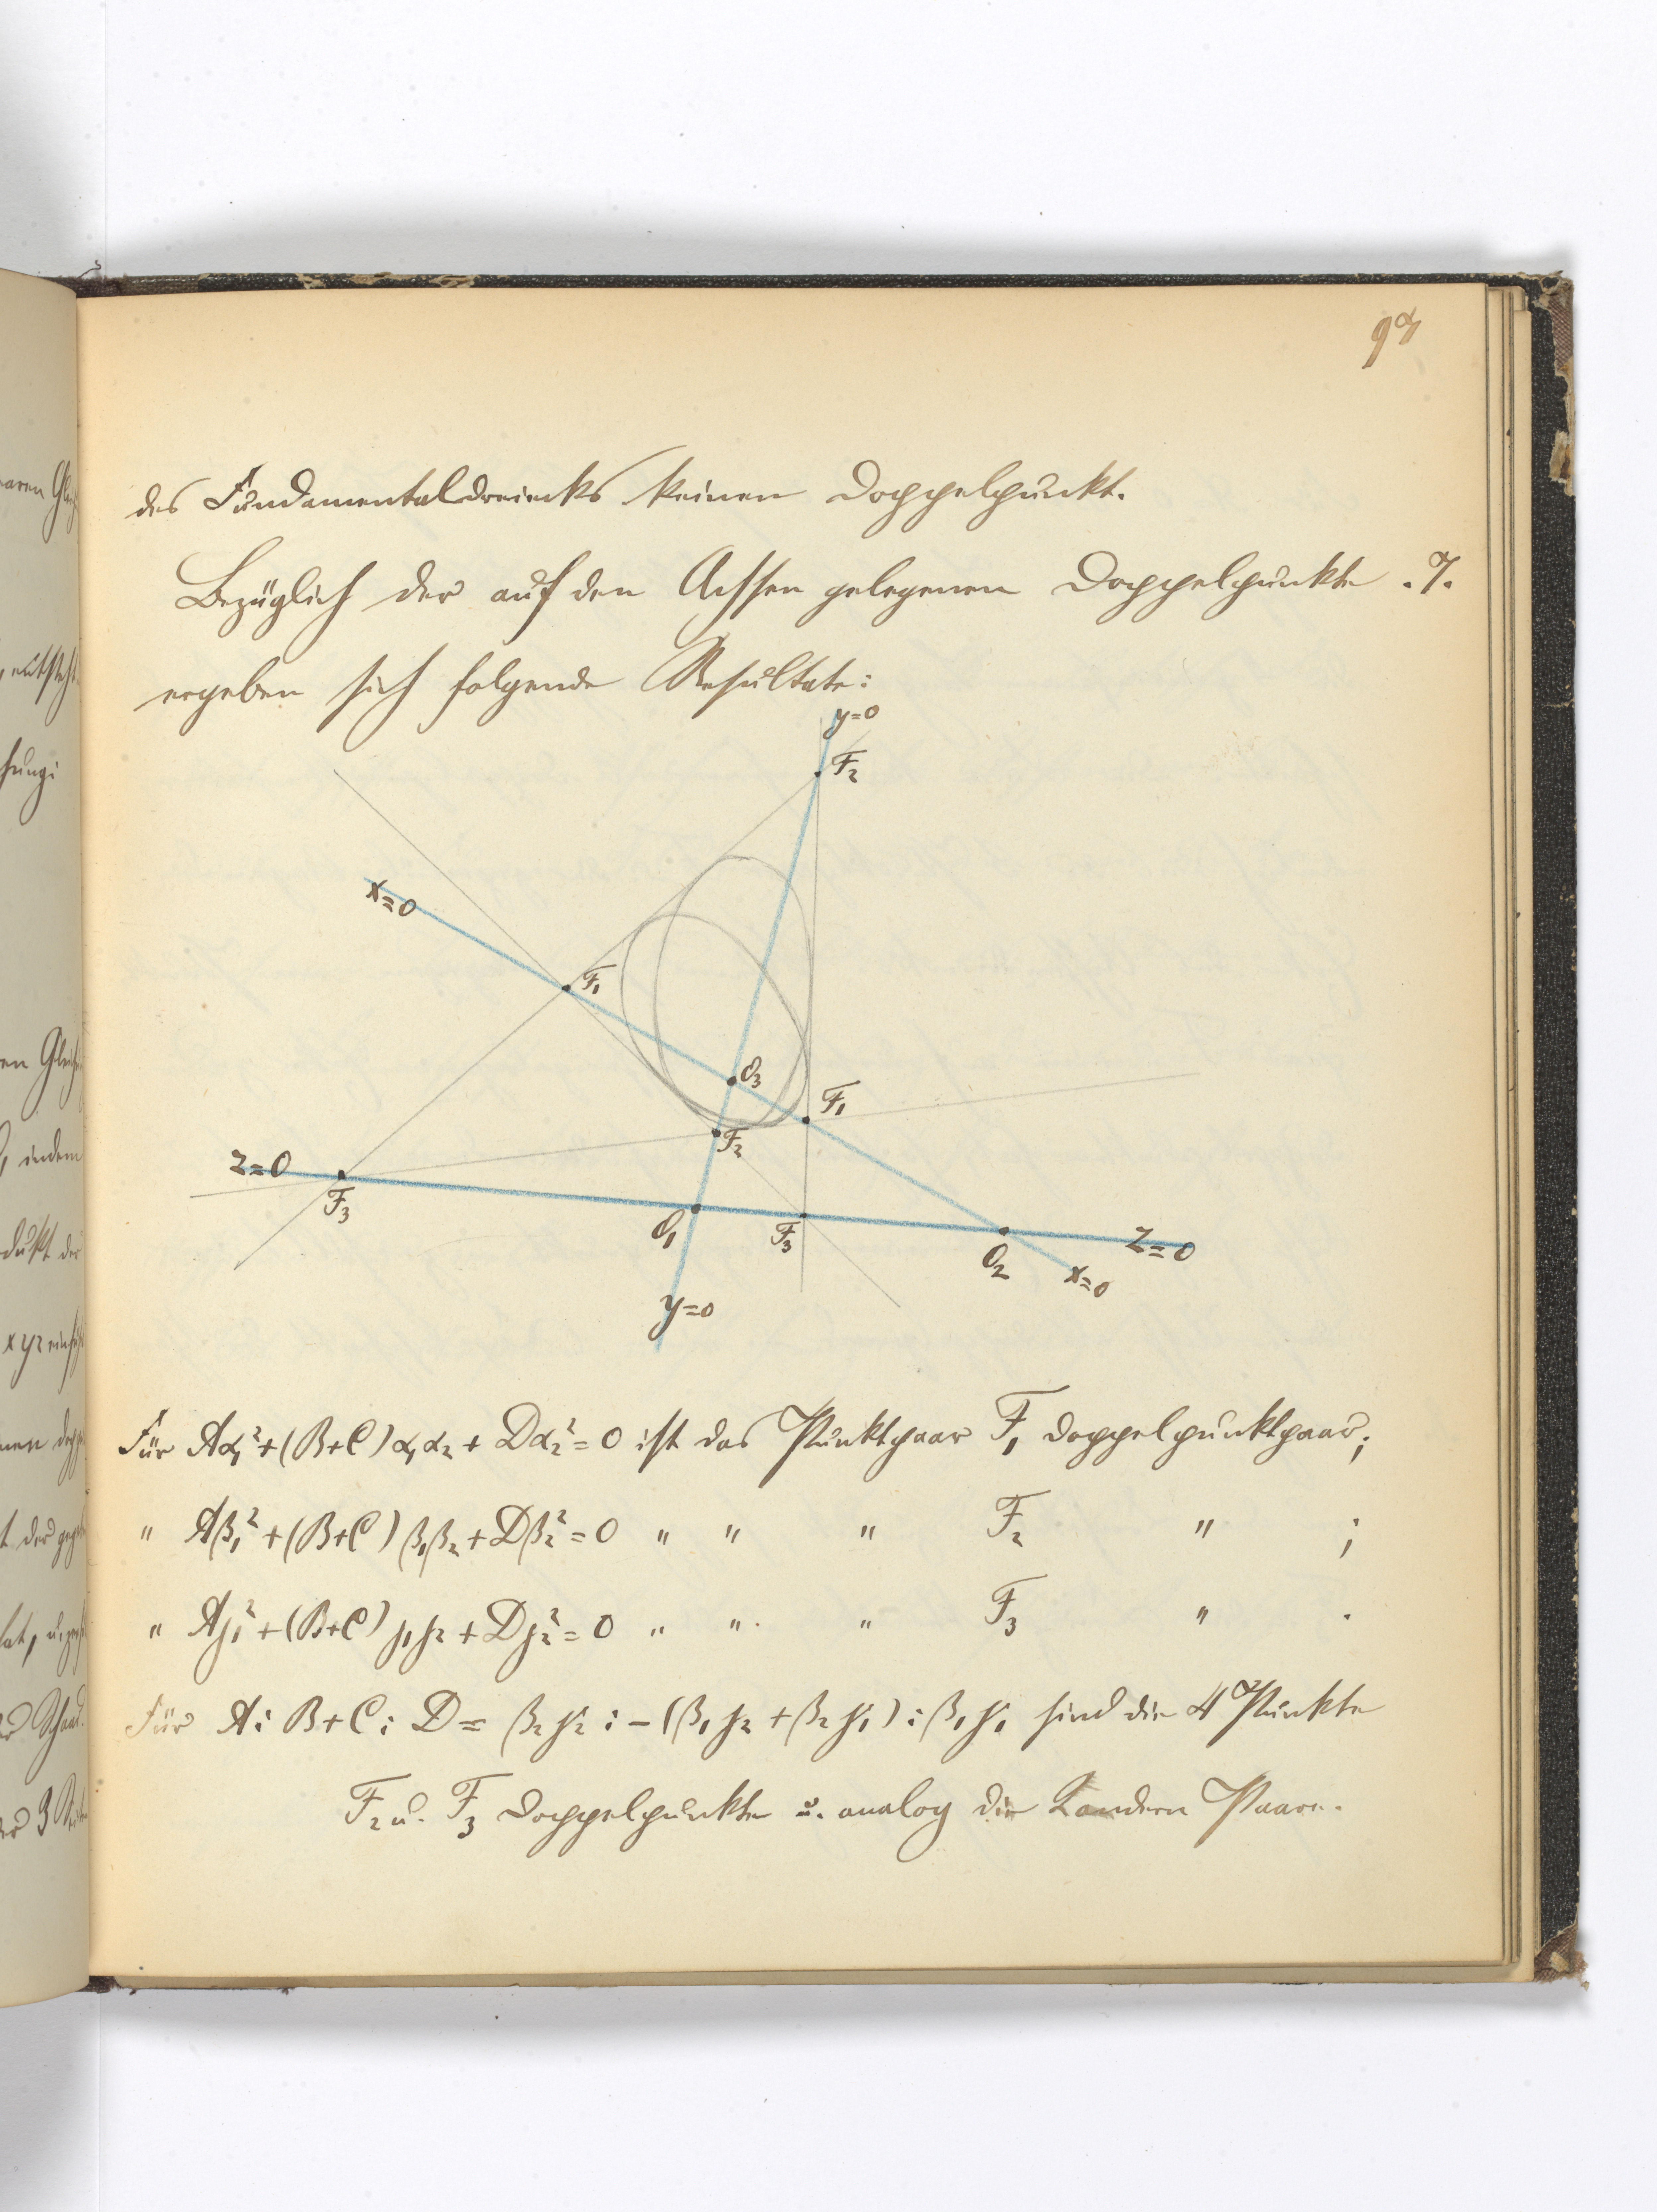 des Fundamentaldreiecks keinen Doppelpunkt.
Bezüglich der auf den Achsen gelegenen Doppelpunkte
ergeben sich folgende Resultate:
y=0
F₂
x=0
F₁
O₃
F₁
F₂
z=0
F₃
O₁
F₃
O₂
z=0
x=0
y=0
Für Aα₁²+(B+C)α₁α₂+Dα₂²=0 ist das Punktpaar F₁ Doppelpunktpaar;
" Aβ₁²+(B+C)β₁β₂+Dβ₂²=0 " " " F₂ " ;
" Aγ₁²+(B+C)γ₁γ₂+Dγ₂²=0 " " " F₃ " .
Für A:B+C:D=β₂γ₂:-(β₁γ₂+β₂γ₁):β₁γ₁ sind die 4 Punkte
F₂ u. F₃ Doppelpunkte u. analog die 2 andern Paare.